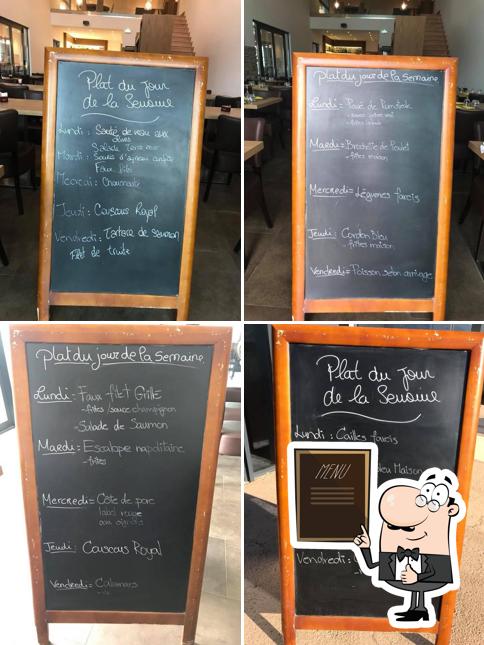 Plat du Jour
de la Semaine
Lundi : Sauté de veau aux
olives
Salade
Mardi : Souris d'agneau confite
Faux filet
Mecredi :
Jeudi : Couscous Royal
Vendredi : Tartare de saumon
Filet de truite
Plat du jour de la semaine
Lundi = Pavé de
- frites
Mardi = Brochette de Poulet
- frites maison
Mercredi = Légumes farcis
Jeudi : Cordon Bleu
- frites maison
Vendredi = Poisson selon arrivage
Plat du jour de la semaine
Lundi : Faux filet Grillé
- frites / sauce champignon
- Salade de Saumon
Mardi = Escalope napolitaine
- frites
Mercredi = Côte de porc
label rouge
aux oignons
Jeudi : Couscous Royal
Vendredi = Calamars
Plat du Jour
de la Semaine
Lundi : Cailles farcis
bleu Maison
MENU
Vendredi :